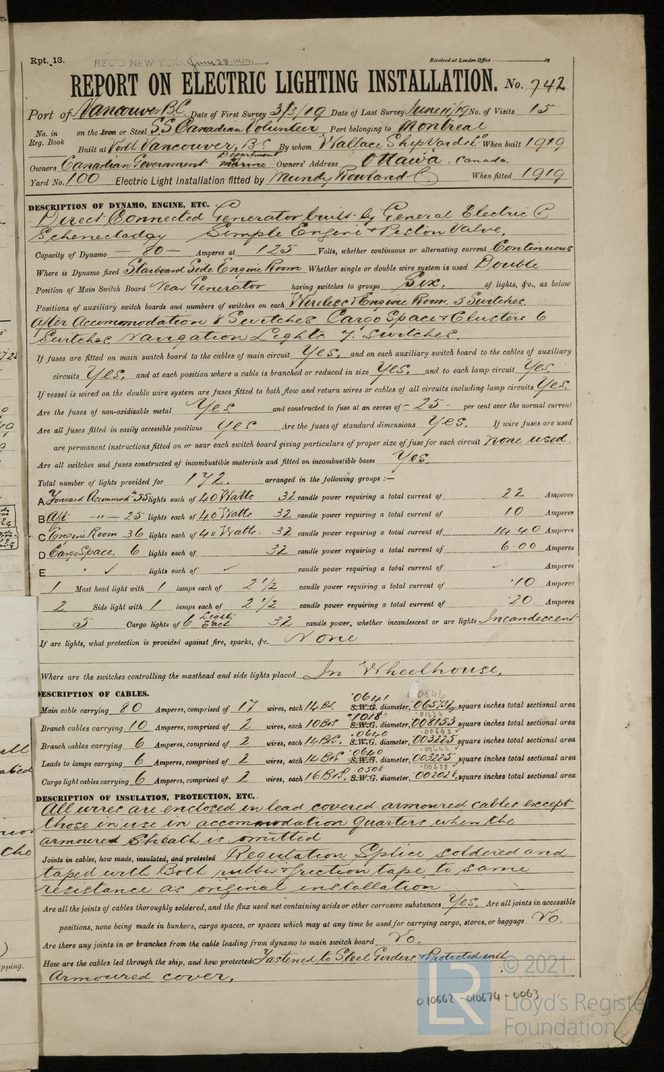 Rpt. 13. REC'D NEW YORK June 28 1919 Received at London Office 19
REPORT ON ELECTRIC LIGHTING INSTALLATION. No. 742
Port of Vancouver BC Date of First Survey 3/3/19 Date of Last Survey June 11/19 No. of Visits 15
No. in Reg. Book on the Iron or Steel SS Canadian Volunteer Port belonging to Montreal
Built at North Vancouver, B.C. By whom Wallace Shipyards Ld When built 1919
Owners Canadian Government Department Marine Owners' Address Ottawa Canada.
Yard No. 100 Electric Light Installation fitted by Mundy Rowland C When fitted 1919
DESCRIPTION OF DYNAMO, ENGINE, ETC.
Direct Connected Generator built by General Electric C
Schenectady Simple Engine + Piston Valve.
Capacity of Dynamo 80 Amperes at 125 Volts, whether continuous or alternating current Continuous
Where is Dynamo fixed Starboard Side Engine Room Whether single or double wire system is used Double
Position of Main Switch Board Near Generator having switches to groups Six. of lights, &c., as below
Positions of auxiliary switch boards and numbers of switches on each Wireless & Engine Room 5 Switches
After Accomodation 8 Switches Cargo Space & Clusters 6
Switches Navigation Lights 7 Switches.
If fuses are fitted on main switch board to the cables of main circuit Yes. and on each auxiliary switch board to the cables of auxiliary
circuits Yes. and at each position where a cable is branched or reduced in size Yes. and to each lamp circuit Yes
If vessel is wired on the double wire system are fuses fitted to both flow and return wires or cables of all circuits including lamp circuits Yes.
Are the fuses of non-oxidizable metal Yes and constructed to fuse at an excess of - 25 - per cent over the normal current
Are all fuses fitted in easily accessible positions Yes Are the fuses of standard dimensions Yes. If wire fuses are used
are permanent instructions fitted on or near each switch board giving particulars of proper size of fuse for each circuit None used.
Are all switches and fuses constructed of incombustible materials and fitted on incombustible bases Yes.
Total number of lights provided for 172. arranged in the following groups :—
A Forward Accommod n 55 lights each of 40 Watts 32 candle power requiring a total current of 22 Amperes
B Aft — " — 25 lights each of 40 Watts 32 candle power requiring a total current of 10 Amperes
C Engine Room 36 lights each of 40 Watts. 32 candle power requiring a total current of 14.40 Amperes
D Cargo Space. 6 lights each of 32 candle power requiring a total current of 6.00 Amperes
E lights each of candle power requiring a total current of Amperes
1 Mast head light with 1 lamps each of 2 1/2 candle power requiring a total current of .10 Amperes
2 Side light with 1 lamps each of 2 1/2 candle power requiring a total current of .20 Amperes
5 Cargo lights of 6 Lights Each 32 candle power, whether incandescent or arc lights Incandescent
If arc lights, what protection is provided against fire, sparks, &c. None
Where are the switches controlling the masthead and side lights placed In Wheelhouse.
DESCRIPTION OF CABLES.
Main cable carrying 80 Amperes, comprised of 17 wires, each 14 BS. .0641 S.W.G. diameter, square inches total sectional area
Branch cables carrying 10 Amperes, comprised of 2 wires, each 10 BS .1018 S.W.G. diameter, .008153 square inches total sectional area
Branch cables carrying 6 Amperes, comprised of 2 wires, each 14 BS. .0640 S.W.G. diameter, .003225 square inches total sectional area
Leads to lamps carrying 6 Amperes, comprised of 2 wires, each 14 BS .0640 S.W.G. diameter, .003225 square inches total sectional area
Cargo light cables carrying 6 Amperes, comprised of 2 wires, each 16 BS. .0508 S.W.G. diameter, .002028 square inches total sectional area
DESCRIPTION OF INSULATION, PROTECTION, ETC.
All wires are enclosed in lead covered armoured cables except
those in use in accommodation quarters when the
armoured Sheath is omitted
Joints in cables, how made, insulated, and protected Regulation Splice soldered and
taped with Both rubber & friction tape to same
resistance as original installation
Are all the joints of cables thoroughly soldered, and the flux used not containing acids or other corrosive substances Yes. Are all joints in accessible
positions, none being made in bunkers, cargo spaces, or spaces which may at any time be used for carrying cargo, stores, or baggage No.
Are there any joints in or branches from the cable leading from dynamo to main switch board No.
How are the cables led through the ship, and how protected Fastened to Steel Girders & Protected with
Armoured cover.
010662-010674-0063
LR © 2021
Lloyd's Register
Foundation